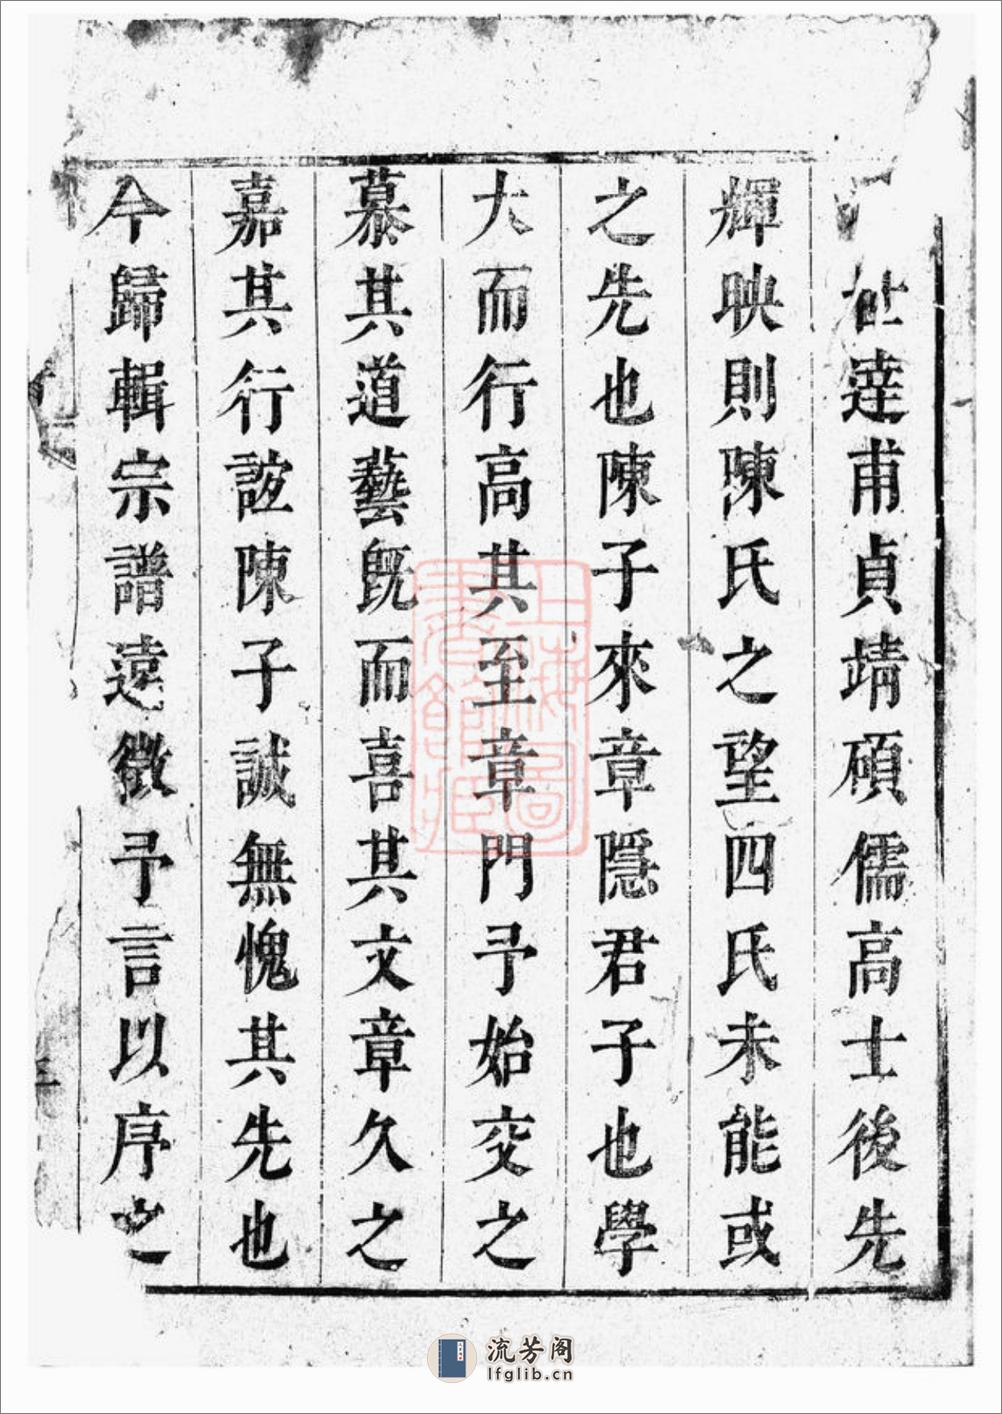 達甫貞靖碩儒高士後先
輝映則陳氏之望四氏未能或
之先也陳子來章隱君子也學
大而行高其至章門予始交之
慕其道藝旣而喜其文章久之
嘉其行誼陳子誠無愧其先也
今歸輯宗譜遠徵予言以序之
上海圖書館藏
流芳阁
lfglib.cn